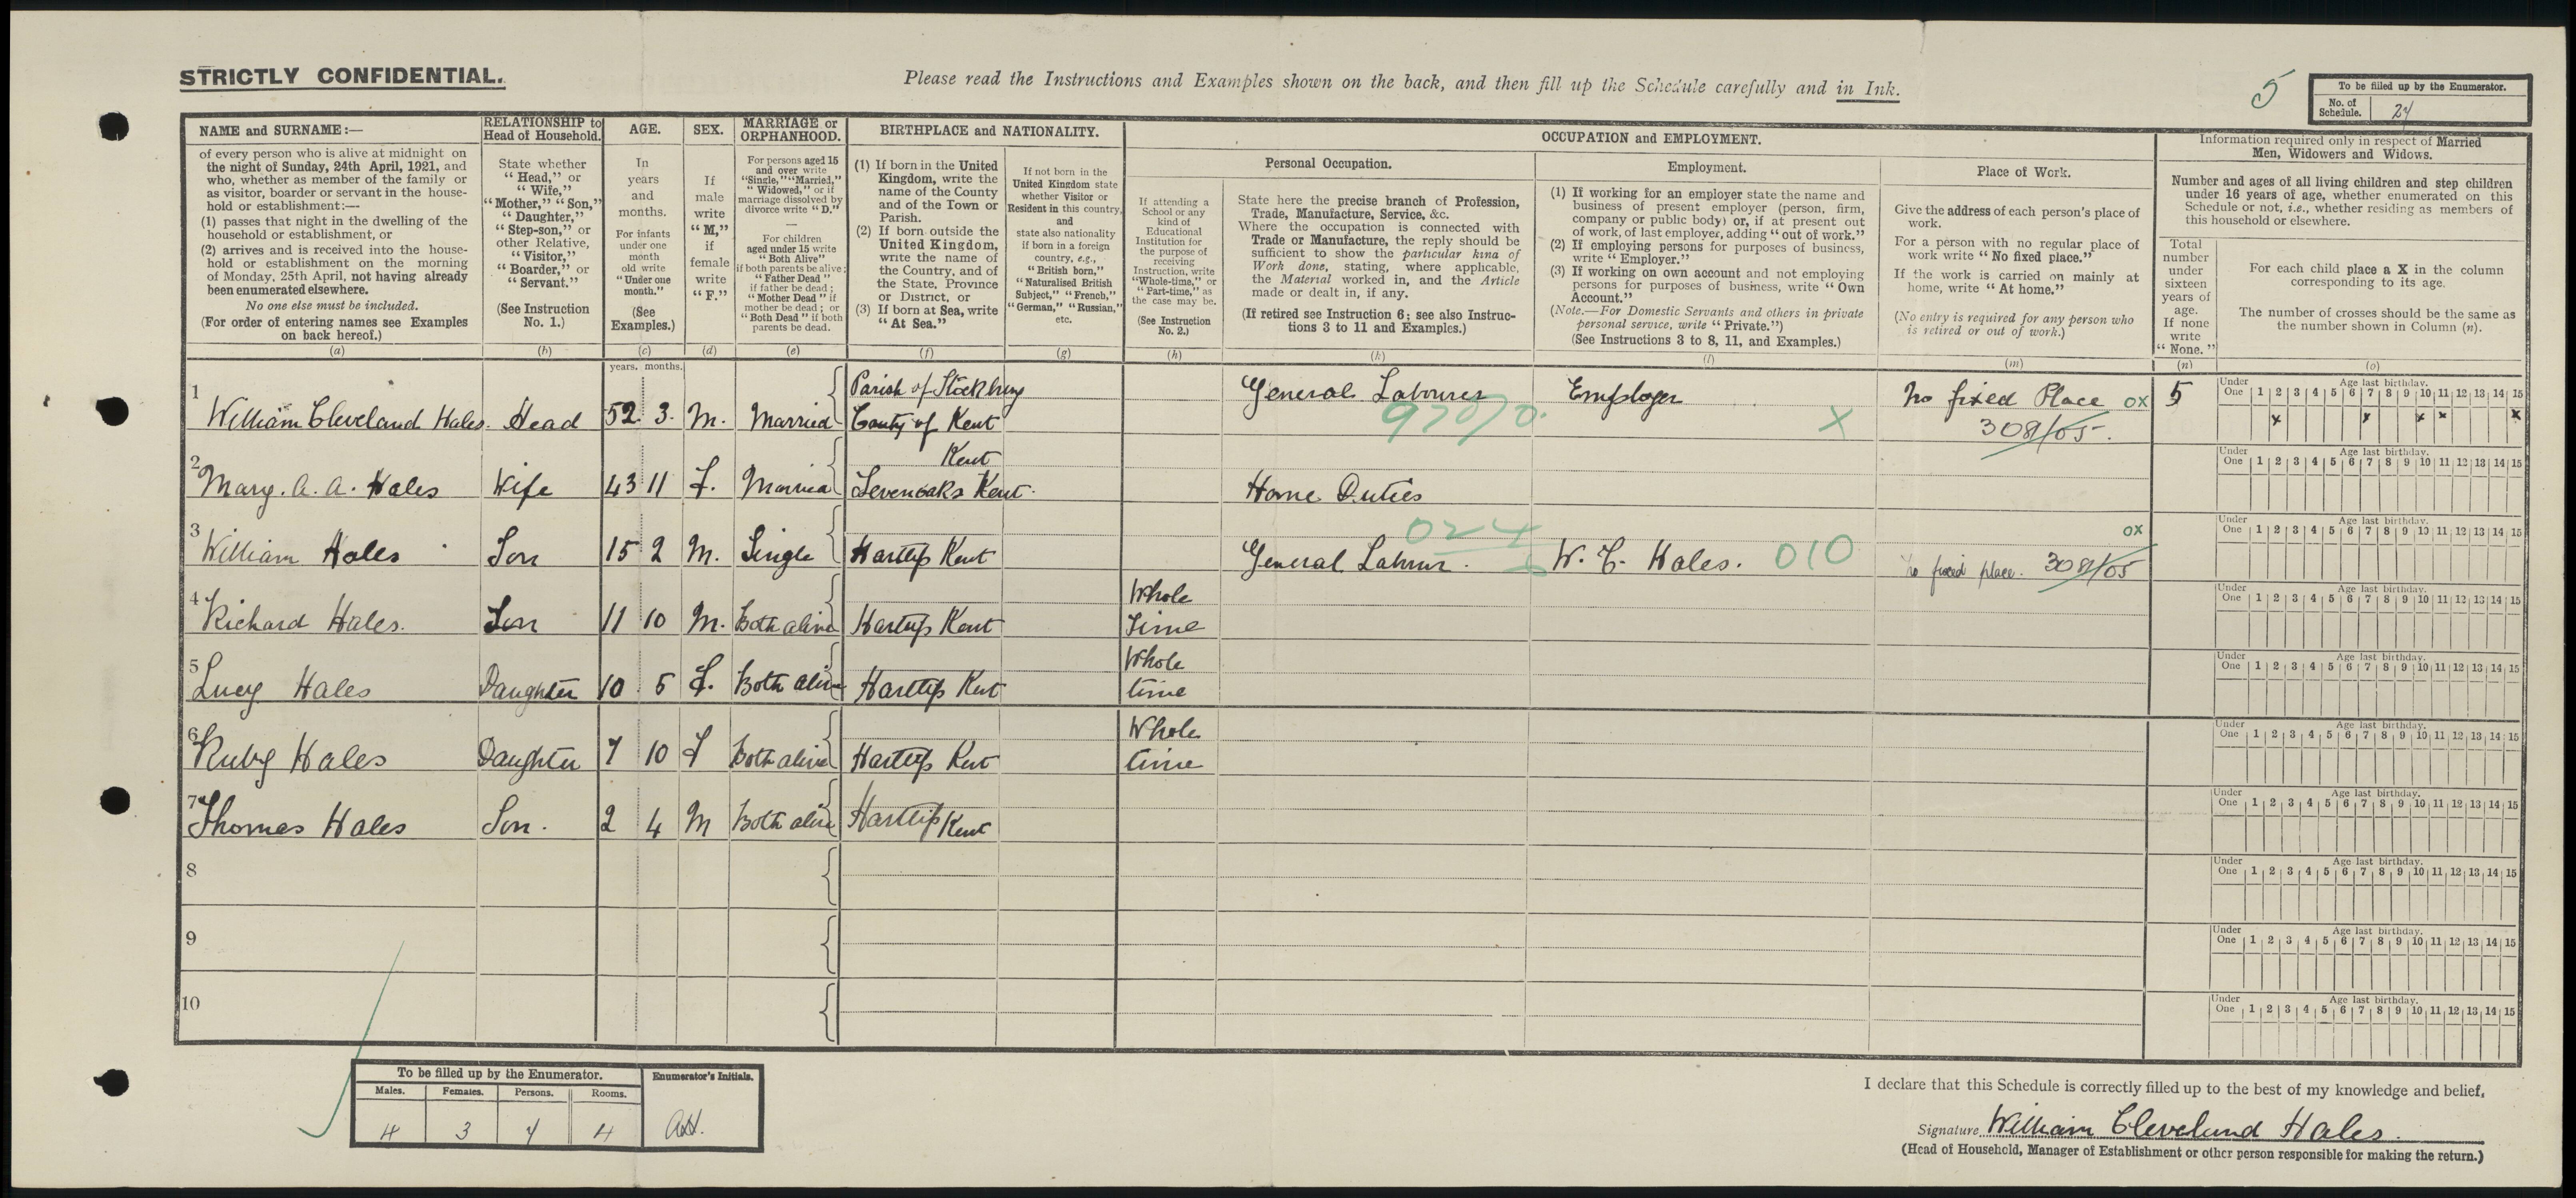 STRICTLY CONFIDENTIAL.
Please read the Instructions and Examples shown on the back, and then fill up the Schedule carefully and in Ink.
5
To be filled up by the Enumerator.
No. of Schedule.
24
NAME and SURNAME:—
of every person who is alive at midnight on
the night of Sunday, 24th April, 1921, and
who, whether as member of the family or
as visitor, boarder or servant in the house-
hold or establishment:—
(1) passes that night in the dwelling of the
household or establishment, or
(2) arrives and is received into the house-
hold or establishment on the morning
of Monday, 25th April, not having already
been enumerated elsewhere.
No one else must be included.
(For order of entering names see Examples
on back hereof.)
(a)
RELATIONSHIP to
Head of Household.
State whether
"Head," or
"Wife,"
"Mother," "Son,"
"Daughter,"
"Step-son," or
other Relative,
"Visitor,"
"Boarder," or
"Servant."
(See Instruction
No. 1.)
(b)
AGE.
In
years
and
months.
For infants
under one
month
old write
"Under one
month."
(See
Examples.)
(c)
years. months.
SEX.
If
male
write
"M,"
if
female
write
"F."
(d)
MARRIAGE or
ORPHANHOOD.
For persons aged 15
and over write
"Single," "Married,"
"Widowed," or if
marriage dissolved by
divorce write "D."
For children
aged under 15 write
"Both Alive"
if both parents be alive;
"Father Dead"
if father be dead;
"Mother Dead" if
mother be dead; or
"Both Dead" if both
parents be dead.
(e)
BIRTHPLACE and NATIONALITY.
(1) If born in the United
Kingdom, write the
name of the County
and of the Town or
Parish.
(2) If born outside the
United Kingdom,
write the name of
the Country, and of
the State, Province
or District, or
(3) If born at Sea, write
"At Sea."
(f)
If not born in the
United Kingdom state
whether Visitor or
Resident in this country,
and
state also nationality
if born in a foreign
country, e.g.,
"British born,"
"Naturalised British
Subject," "French,"
"German," "Russian,"
etc.
(g)
OCCUPATION and EMPLOYMENT.
If attending a
School or any
kind of
Educational
Institution for
the purpose of
receiving
Instruction, write
"Whole-time," or
"Part-time," as
the case may be.
(See Instruction
No. 2.)
(h)
Personal Occupation.
State here the precise branch of Profession,
Trade, Manufacture, Service, &c.
Where the occupation is connected with
Trade or Manufacture, the reply should be
sufficient to show the particular kind of
Work done, stating, where applicable,
the Material worked in, and the Article
made or dealt in, if any.
(If retired see Instruction 6; see also Instruc-
tions 3 to 11 and Examples.)
(k)
Employment.
(1) If working for an employer state the name and
business of present employer (person, firm,
company or public body) or, if at present out
of work, of last employer, adding "out of work."
(2) If employing persons for purposes of business,
write "Employer."
(3) If working on own account and not employing
persons for purposes of business, write "Own
Account."
(Note.—For Domestic Servants and others in private
personal service, write "Private.")
(See Instructions 3 to 8, 11, and Examples.)
(l)
Place of Work.
Give the address of each person's place of
work.
For a person with no regular place of
work write "No fixed place."
If the work is carried on mainly at
home, write "At home."
(No entry is required for any person who
is retired or out of work.)
(m)
Information required only in respect of Married
Men, Widowers and Widows.
Number and ages of all living children and step children
under 16 years of age, whether enumerated on this
Schedule or not, i.e., whether residing as members of
this household or elsewhere.
Total
number
under
sixteen
years of
age.
If none
write
"None."
(n)
For each child place a X in the column
corresponding to its age.
The number of crosses should be the same as
the number shown in Column (n).
(o)
1 William Cleveland Hales. Head 52 3. M. Married Parish of Stockbury County of Kent General Labourer 970/0. Employer X No fixed Place OX 308/05. 5
Under One Age last birthday. 1 2 3 4 5 6 7 8 9 10 11 12 13 14 15
x x x x x
2 Mary. A. A. Hales Wife 43 11 F. Married Kent Sevenoaks Kent. Home Duties
Under One Age last birthday. 1 2 3 4 5 6 7 8 9 10 11 12 13 14 15
3 William Hales Son 15 2 M. Single Hartlip Kent General Labour. 024 W. C. Hales. 010 No fixed place. 308/05 OX
Under One Age last birthday. 1 2 3 4 5 6 7 8 9 10 11 12 13 14 15
4 Richard Hales. Son 11 10 M. Both alive Hartlip Kent Whole Time
Under One Age last birthday. 1 2 3 4 5 6 7 8 9 10 11 12 13 14 15
5 Lucy Hales Daughter 10 5 F. Both alive Hartlip Kent Whole time
Under One Age last birthday. 1 2 3 4 5 6 7 8 9 10 11 12 13 14 15
6 Ruby Hales Daughter 7 10 F Both alive Hartlip Kent Whole time
Under One Age last birthday. 1 2 3 4 5 6 7 8 9 10 11 12 13 14 15
7 Thomas Hales Son. 2 4 M Both alive Hartlip Kent
Under One Age last birthday. 1 2 3 4 5 6 7 8 9 10 11 12 13 14 15
8
Under One Age last birthday. 1 2 3 4 5 6 7 8 9 10 11 12 13 14 15
9
Under One Age last birthday. 1 2 3 4 5 6 7 8 9 10 11 12 13 14 15
10
Under One Age last birthday. 1 2 3 4 5 6 7 8 9 10 11 12 13 14 15
To be filled up by the Enumerator.
Males. Females. Persons. Rooms.
4 3 7 4
Enumerator's Initials.
I declare that this Schedule is correctly filled up to the best of my knowledge and belief,
Signature William Cleveland Hales.
(Head of Household, Manager of Establishment or other person responsible for making the return.)